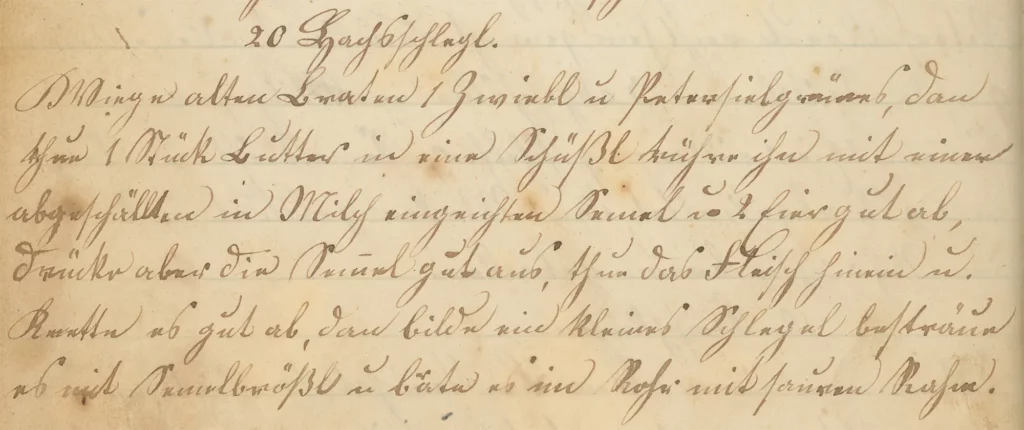 20 Hachsschlegl.
Wiege alten Braten 1 Zwiebl u Petersielgrünes, dan
thue 1 Stük Butter in eine Schüßl rühre ihn mit einer
abgeschällten in Milch eingeichten Semel u 2 Eier gut ab,
drücke aber die Sem̄el gut aus, thue das Fleisch hinein u.
Knette es gut ab, dan bilde ein kleines Schlegel besträue
es mit Semelbrößl u brate es im Rohr mit sauren Rahm.